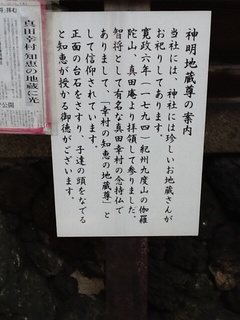 神明地蔵尊の案内
当社には、神社には珍しいお地蔵さんが
お祀りしてあります。
寛政六年(一七九四)紀州九度山の伽羅
陀山、真田庵より拝領して参りました。
智将として有名な真田幸村の念持仏で
ありまして、「幸村の知恵の地蔵尊」と
して信仰されています。
正面の台石をさすり、子達の頭をなでる
と知恵が授かる御徳がございます。
真田幸村 知恵の地蔵に光